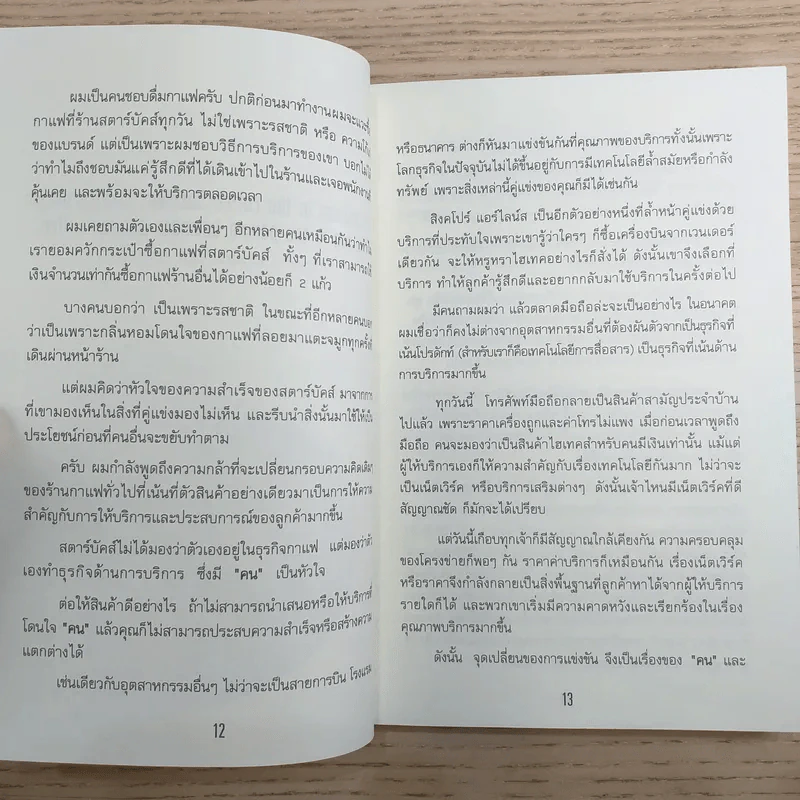 ผมเป็นคนชอบดื่มกาแฟครับ ปกติก่อนมาทำงานผมจะแวะซื้อ
กาแฟที่ร้านสตาร์บัคส์ทุกวัน ไม่ใช่เพราะรสชาติ หรือ ความ
ของแบรนด์ แต่เป็นเพราะผมชอบวิธีการบริการของเขา บอกไม่ได้
ว่าทำไมถึงชอบมันแค่รู้สึกดีที่ได้เดินเข้าไปในร้านและเจอพนักงานที่
คุ้นเคย และพร้อมจะให้บริการตลอดเวลา
ผมเคยถามตัวเองและเพื่อนๆ อีกหลายคนเหมือนกันว่าทำไม
เรายอมควักกระเป๋าซื้อกาแฟที่สตาร์บัคส์ ทั้งๆ ที่เราสามารถใช้
เงินจำนวนเท่ากันซื้อกาแฟร้านอื่นได้อย่างน้อยก็ 2 แก้ว
บางคนบอกว่า เป็นเพราะรสชาติ ในขณะที่อีกหลายคนบอก
ว่าเป็นเพราะกลิ่นหอมโดนใจของกาแฟที่ลอยมาแตะจมูกทุกครั้งที่
เดินผ่านหน้าร้าน
แต่ผมคิดว่าหัวใจของความสำเร็จของสตาร์บัคส์ มาจากการ
ที่เขามองเห็นในสิ่งที่คู่แข่งมองไม่เห็น และรีบนำสิ่งนั้นมาใช้ให้เป็น
ประโยชน์ก่อนที่คนอื่นจะขยับทำตาม
ครับ ผมกำลังพูดถึงความกล้าที่จะเปลี่ยนกรอบความคิดเดิมๆ
ของร้านกาแฟทั่วไปที่เน้นที่ตัวสินค้าอย่างเดียวมาเป็นการให้ความ
สำคัญกับการให้บริการและประสบการณ์ของลูกค้ามากขึ้น
สตาร์บัคส์ไม่ได้มองว่าตัวเองอยู่ในธุรกิจกาแฟ แต่มองว่าตัว
เองทำธุรกิจด้านการบริการ ซึ่งมี "คน" เป็นหัวใจ
ต่อให้สินค้าดีอย่างไร ถ้าไม่สามารถนำเสนอหรือให้บริการที่
โดนใจ "คน" แล้วคุณก็ไม่สามารถประสบความสำเร็จหรือสร้างความ
แตกต่างได้
เช่นเดียวกับอุตสาหกรรมอื่นๆ ไม่ว่าจะเป็นสายการบิน โรงแรม
12
หรือธนาคาร ต่างก็หันมาแข่งขันกันที่คุณภาพของบริการทั้งนั้นเพราะ
โลกธุรกิจในปัจจุบันไม่ได้ขึ้นอยู่กับการมีเทคโนโลยีล้ำสมัยหรือกำลัง
ทรัพย์ เพราะสิ่งเหล่านี้คู่แข่งของคุณก็มีได้เช่นกัน
สิงคโปร์ แอร์ไลน์ส เป็นอีกตัวอย่างหนึ่งที่ล้ำหน้าคู่แข่งด้วย
บริการที่ประทับใจเพราะเขารู้ว่าใครๆ ก็ซื้อเครื่องบินจากเวนเดอร์
เดียวกัน จะให้หรูหราไฮเทคอย่างไรก็สั่งได้ ดังนั้นเขาจึงเลือกที่
บริการ ทำให้ลูกค้ารู้สึกดีและอยากกลับมาใช้บริการในครั้งต่อไป
มีคนถามผมว่า แล้วตลาดมือถือล่ะจะเป็นอย่างไร ในอนาคต
ผมเชื่อว่าก็คงไม่ต่างจากอุตสาหกรรมอื่นที่ต้องผันตัวจากเป็นธุรกิจที่
เน้นโปรดักท์ (สำหรับเราก็คือเทคโนโลยีการสื่อสาร) เป็นธุรกิจที่เน้นด้าน
การบริการมากขึ้น
ทุกวันนี้ โทรศัพท์มือถือกลายเป็นสินค้าสามัญประจำบ้าน
ไปแล้ว เพราะราคาเครื่องถูกและค่าโทรไม่แพง เมื่อก่อนเวลาพูดถึง
มือถือ คนจะมองว่าเป็นสินค้าไฮเทคสำหรับคนมีเงินเท่านั้น แม้แต่
ผู้ให้บริการเองก็ให้ความสำคัญกับเรื่องเทคโนโลยีกันมาก ไม่ว่าจะ
เป็นเน็ตเวิร์ค หรือบริการเสริมต่างๆ ดังนั้นเจ้าไหนมีเน็ตเวิร์คที่ดี
สัญญาณชัด ก็มักจะได้เปรียบ
แต่วันนี้เกือบทุกเจ้าก็มีสัญญาณใกล้เคียงกัน ความครอบคลุม
ของโครงข่ายก็พอๆ กัน ราคาค่าบริการก็เหมือนกัน เรื่องเน็ตเวิร์ค
หรือราคาจึงกำลังกลายเป็นสิ่งพื้นฐานที่ลูกค้าหาได้จากผู้ให้บริการ
รายใดก็ได้ และพวกเขาเริ่มมีความคาดหวังและเรียกร้องในเรื่อง
คุณภาพบริการมากขึ้น
ดังนั้น จุดเปลี่ยนของการแข่งขัน จึงเป็นเรื่องของ "คน" และ
13